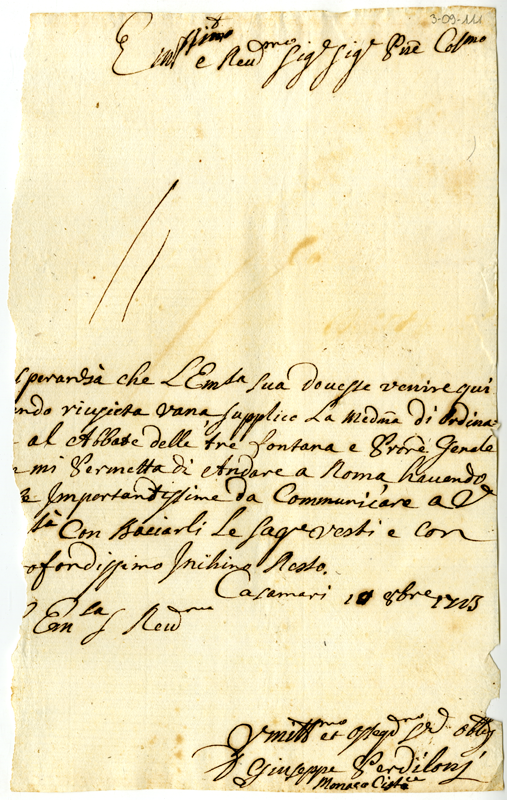 3-09-111
Emssimo e Reudmo Sigre Sigre Prne Colmo
sperandsà che L'Emta sua douesse venire qui
endo riuscita vana, supplico La medma di ordina=
al Abbate delle tre fontana e Prore Genale
mi Permetta di Andare a Roma hauendo
Importantissime da Communicare a V
tà Con Baciarli Le sagre vesti e con
ofondissimo Inchino Resto.
Casamari 10 8bre 1723
Emza Reudma
Vmilmo et osseqmo Serd obblg
D Giuseppe Perdiloni
Monaco Cistce